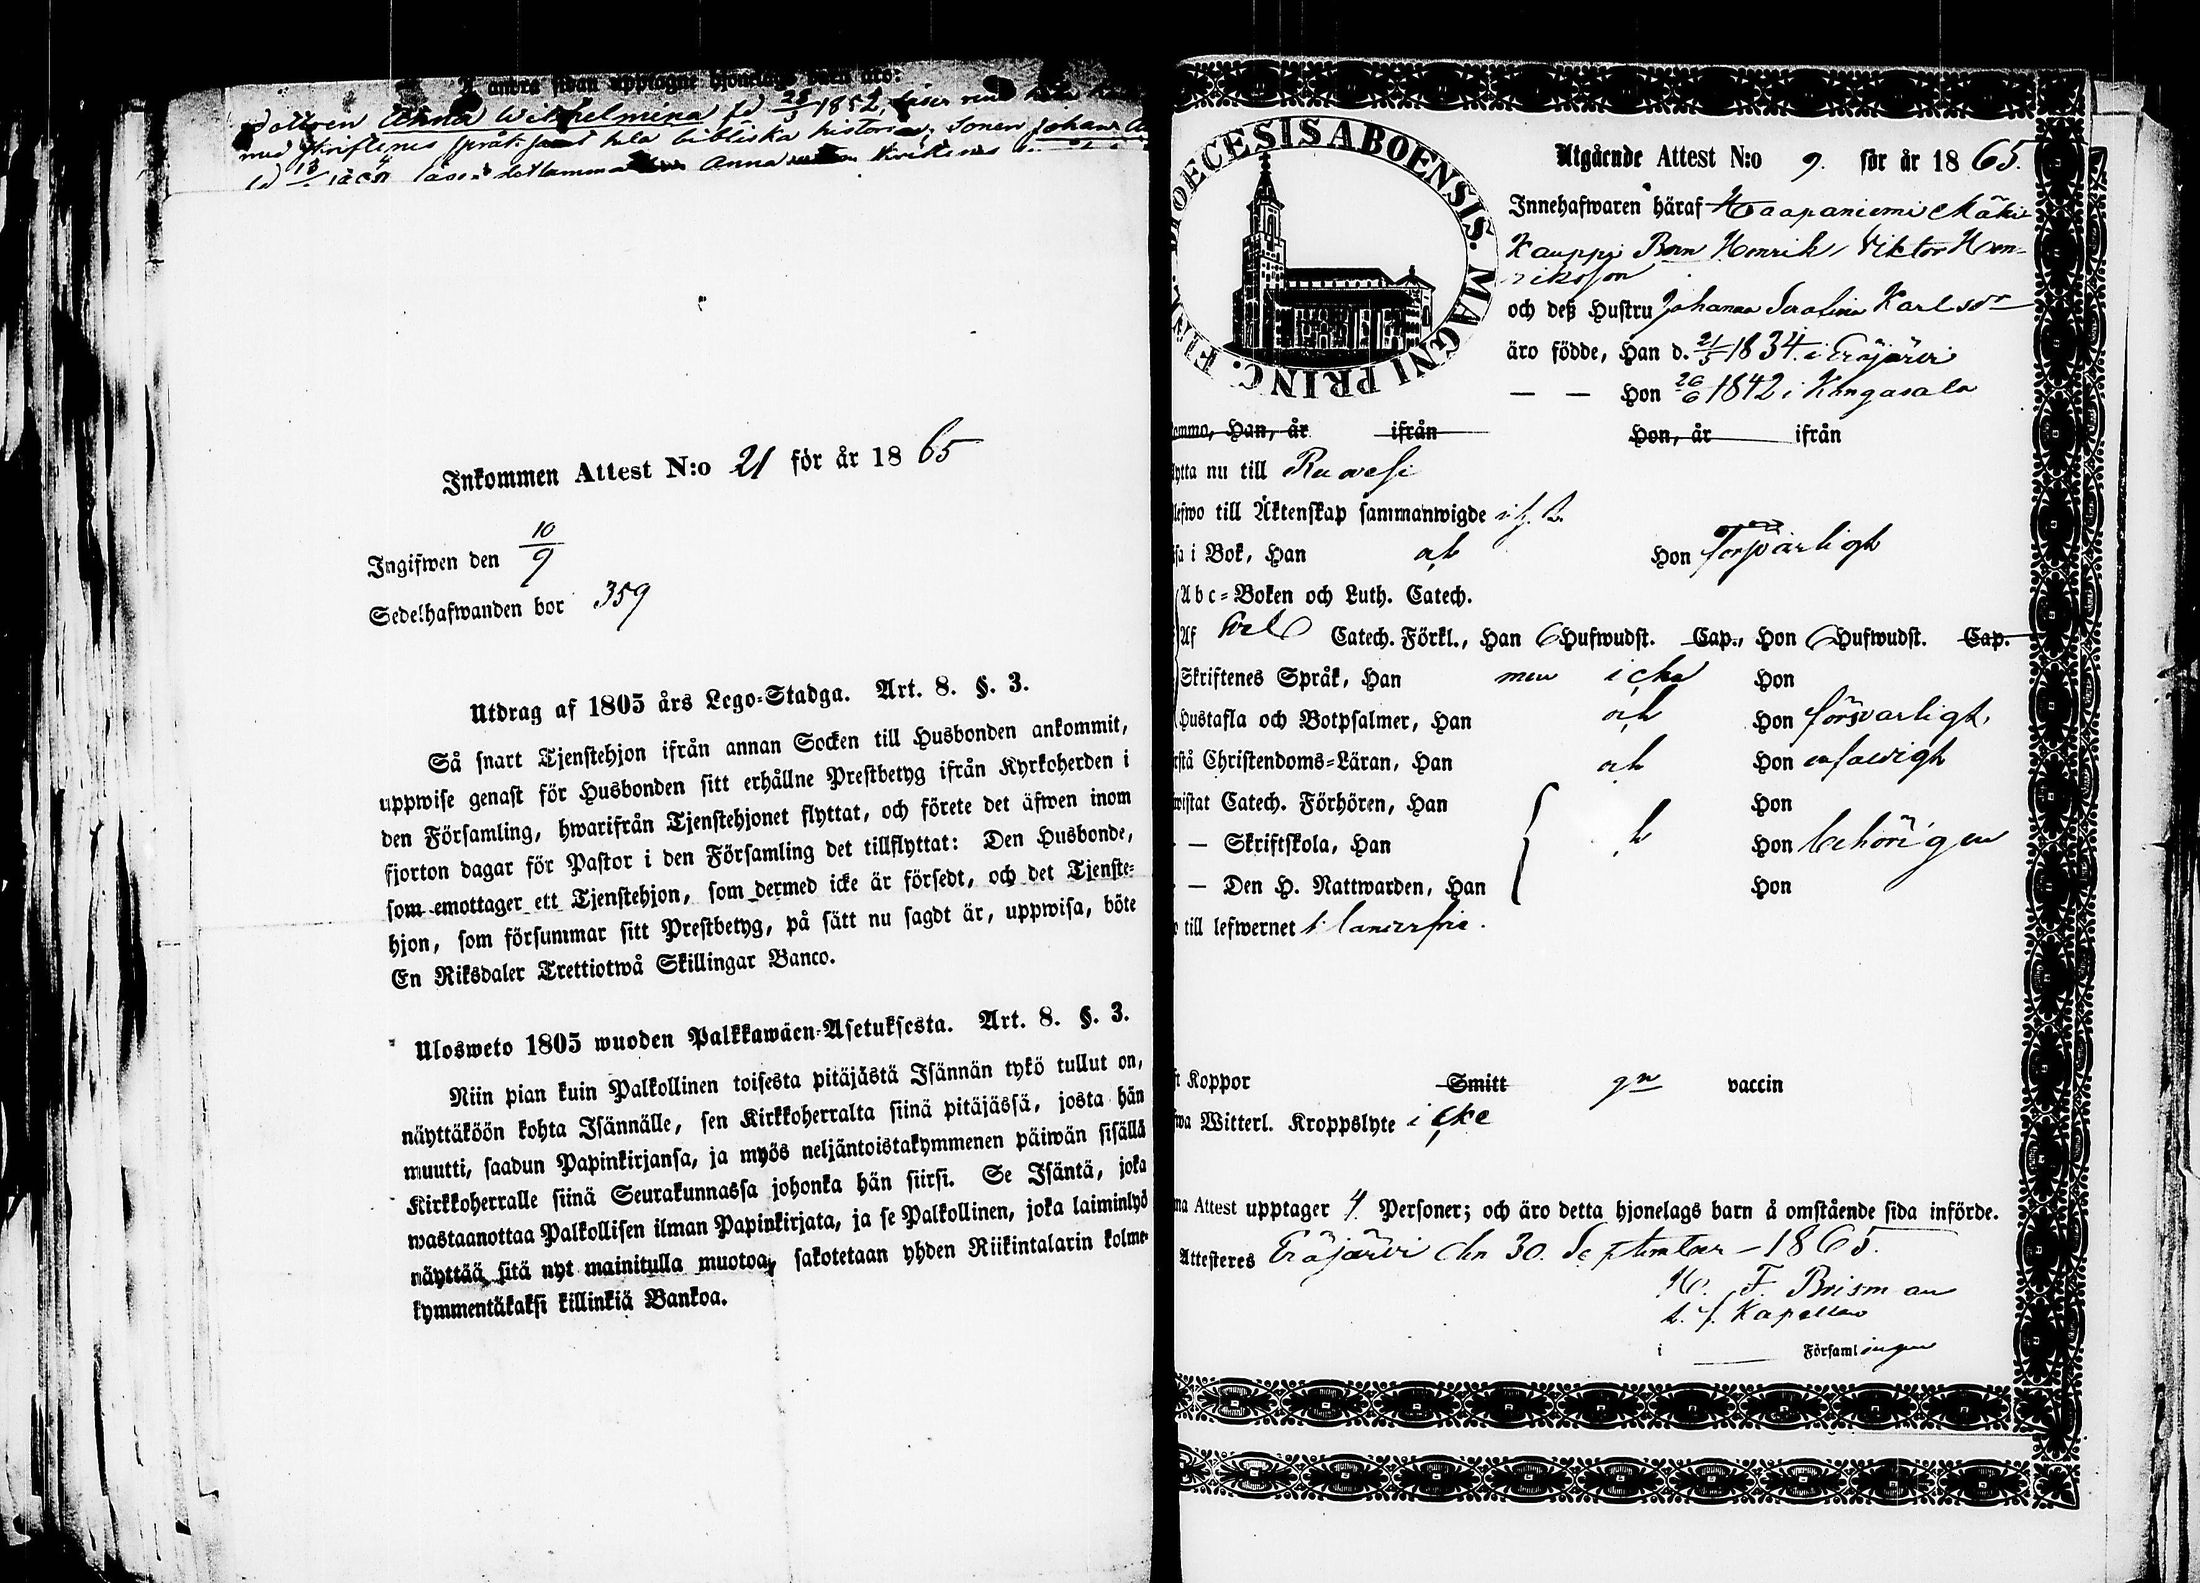 å andra sidan upptagne hjonelags barn äro:
Dottren Anna Wilhelmina fd 28/3 1852, läser rent hela
med skriftenes språk samt hela bibliska historien; Sonen Johan
läser detsamma Anna Skriftenes
Inkommen Attest N:o 21 för år 1865
Ingifwen den 10/9
Sedelhafwanden bor 359
Utdrag af 1805 års Lego-Stadga. Art. 8. §. 3.
Så snart Tjenstehjon ifrån annan Socken till Husbonden ankommit,
uppwise genast för Husbonden sitt erhållne Prestbetyg ifrån Kyrkoherden i
den Församling, hwarifrån Tjenstehjonet flyttat, och förete det äfwen inom
fjorton dagar för Pastor i den Församling det tillflyttat: Den Husbonde,
som emottager ett Tjenstehjon, som dermed icke är försedt, och det Tjenste-
hjon, som försummar sitt Prestbetyg, på sätt nu sagdt är, uppwisa, böte
En Riksdaler Trettiotwå Skillingar Banco.
Ulosweto 1805 wuoden Palkkawäen-Asetuksesta. Art. 8. §. 3.
Niin pian kuin Palkollinen toisesta pitäjästä Isännän tykö tullut on,
näyttäköön kohta Isännälle, sen Kirkkoherralta siinä pitäjässä, josta hän
muutti, saadun Papinkirjansa, ja myös neljäntoistakymmenen päiwän sisällä
Kirkkoherralle siinä Seurakunnassa johonka hän siirsi. Se Isäntä, joka
wastaanottaa Palkollisen ilman Papinkirjata, ja se Palkollinen, joka laiminlyö
näyttää sitä nyt mainitulla muotoa, sakotetaan yhden Riikintalarin kolme-
kymmentäkaksi killinkiä Bankoa.
DIOECESIS ABOENSIS. MAGNI PRINC. FINL.
Utgående Attest N:o 9. för år 1865.
Innehafwaren häraf Haapaniemi Mäki
Kauppi Bon Henrik Viktor Hen-
riksson
och deß Hustru Johanna Serafina Karlsdr
äro födde, Han d. 21/5 1834. i Eräjärvi
— — Hon 26/6 1842 i Kangasala
ommo, Han, år ifrån Hon, år ifrån
lytta nu till Ruovesi
blefwo till Äktenskap sammanwigde i h. å.
sa i Bok, Han och Hon försvarligt
Abc-Boken och Luth. Catech.
Af Catech. Förkl., Han 6 Hufwudst. Cap., Hon 6 Hufwudst. Cap.
Skriftenes Språk, Han men icke Hon
Hustafla och Botpsalmer, Han och Hon försvarligt,
rstå Christendoms-Läran, Han och Hon enfaldigt
wistat Catech. Förhören, Han Hon
— Skriftskola, Han Hon behörigen
— Den H. Nattwarden, Han Hon
till lefwernet klanderfria.
t Koppor Smitt gn vaccin
wa Witterl. Kroppslyte icke
na Attest upptager 4. Personer; och äro detta hjonelags barn å omstående sida införde.
Attesteres Eräjärvi den 30. September 1865.
H. F. Brisman
t. f. Kapellan
i Församlingen